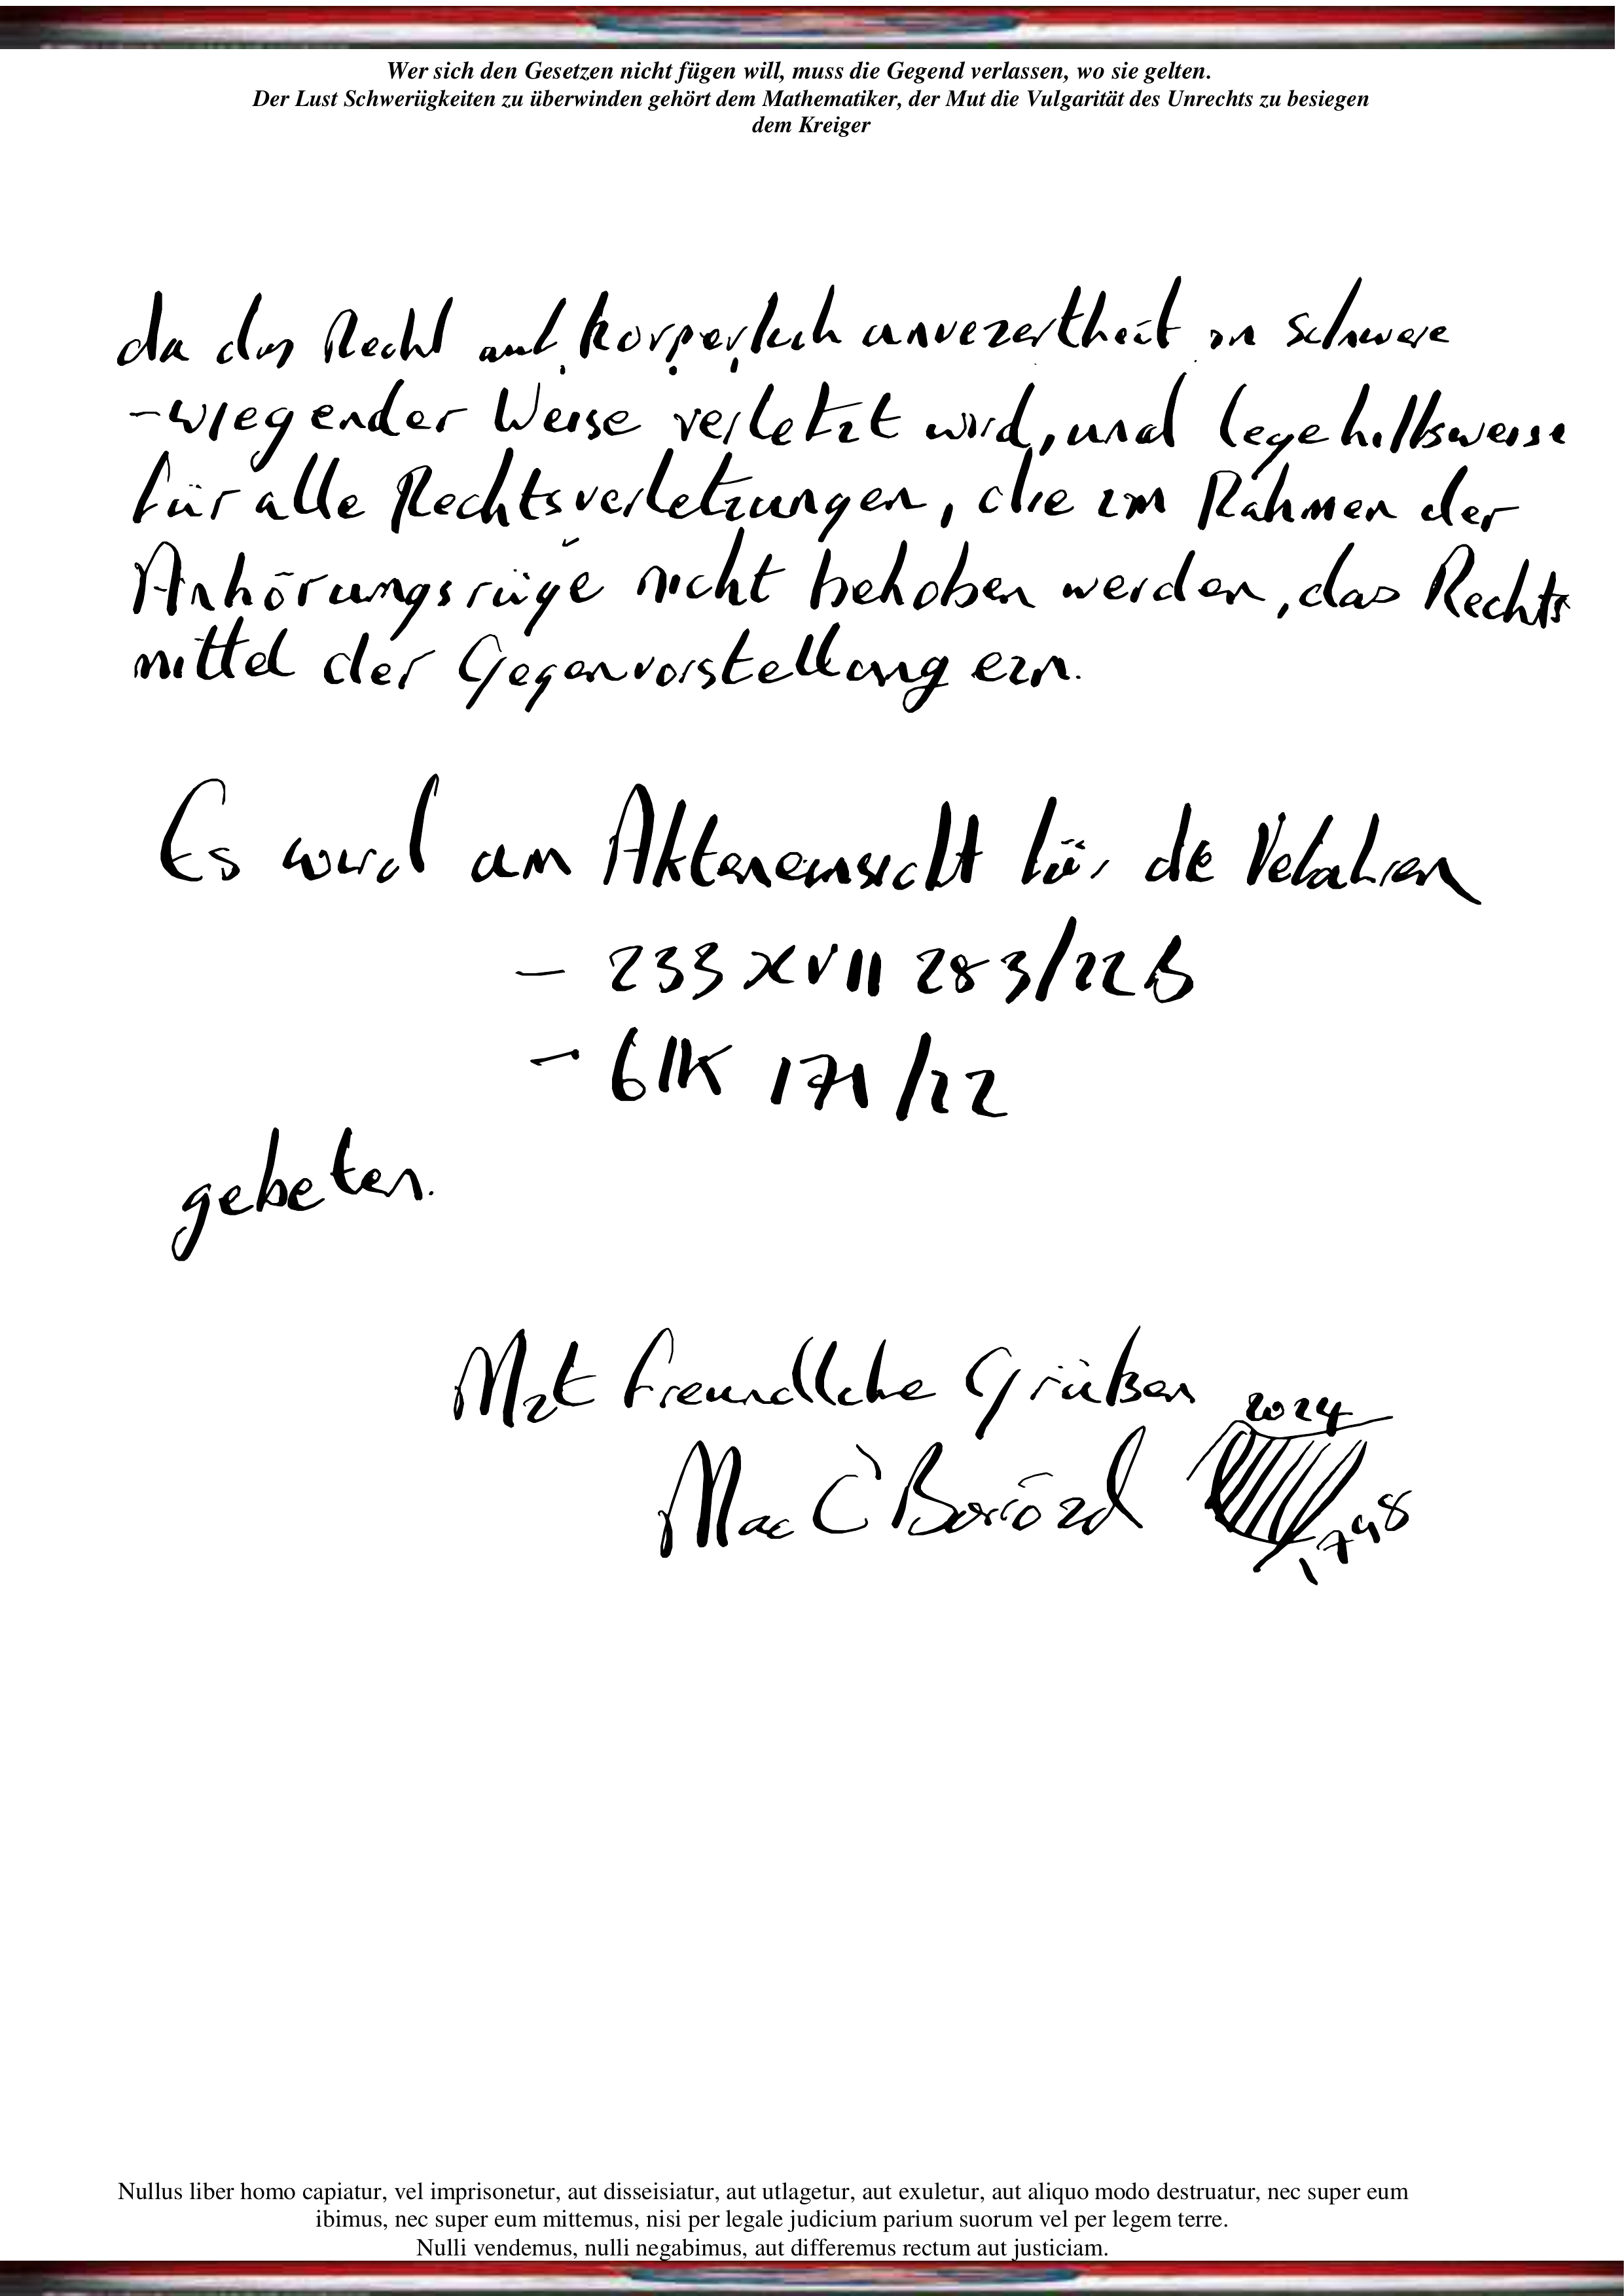 Wer sich den Gesetzen nicht fügen will, muss die Gegend verlassen, wo sie gelten.
Der Lust Schweriigkeiten zu überwinden gehört dem Mathematiker, der Mut die Vulgarität des Unrechts zu besiegen
dem Kreiger
da das Recht auf körperlich unverzertheit in schwere
-wiegender Weise verletzt wird, und lege hilfsweise
für alle Rechtsverletzungen, die im Rahmen der
Anhörungsrüge nicht behoben werden, das Rechts
mittel der Gegenvorstellung ein.
Es wird um Akteneinsicht für die
- 233 XVII 283/22 B
- 6 IK 171/22
gebeten.
Mit freundliche Grüßen
2024
Mac
1748
Nullus liber homo capiatur, vel imprisonetur, aut disseisiatur, aut utlagetur, aut exuletur, aut aliquo modo destruatur, nec super eum
ibimus, nec super eum mittemus, nisi per legale judicium parium suorum vel per legem terre.
Nulli vendemus, nulli negabimus, aut differemus rectum aut justiciam.